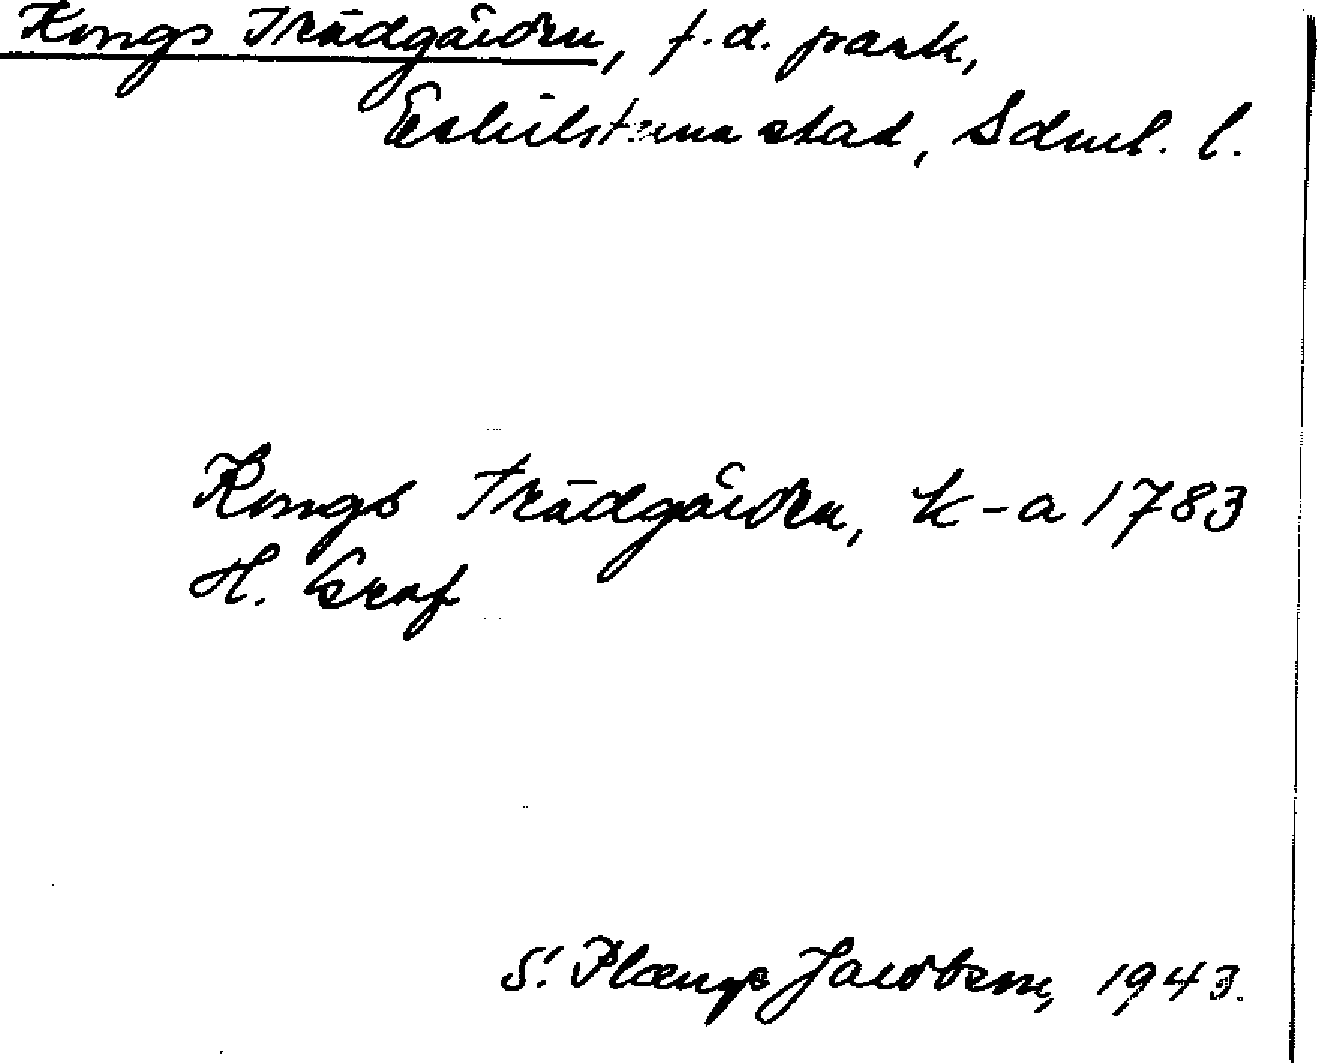 Kongs Trädgården, f.d. park,
Eskilstuna stad, Sdml. l.
Kongs Trädgården, k-a 1783
H. Graf
S. Plænge Jacobson, 1943.